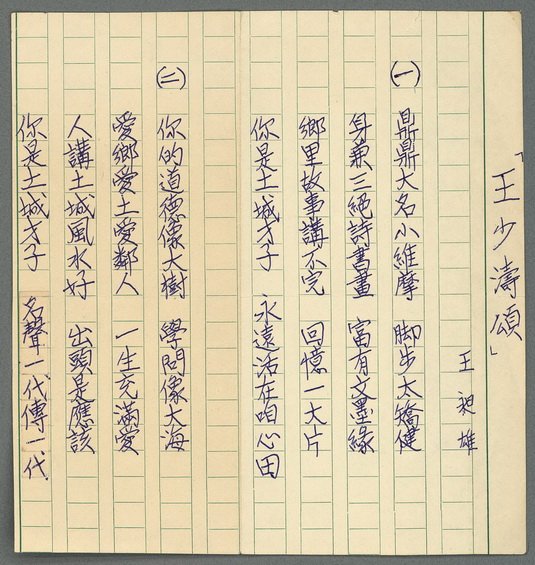 「王少濤頌」
王昶雄
(一)
鼎鼎大名小維摩 脚步太矯健
身兼三絕詩書畫 富有文墨緣
鄉里故事講不完 回憶一大片
你是土城才子 永遠活在咱心田
(二)
你的道德像大樹 學問像大海
愛鄉愛土愛鄰人 一生充滿愛
人講土城風水好 出頭是應該
你是土城才子 名聲一代傳一代